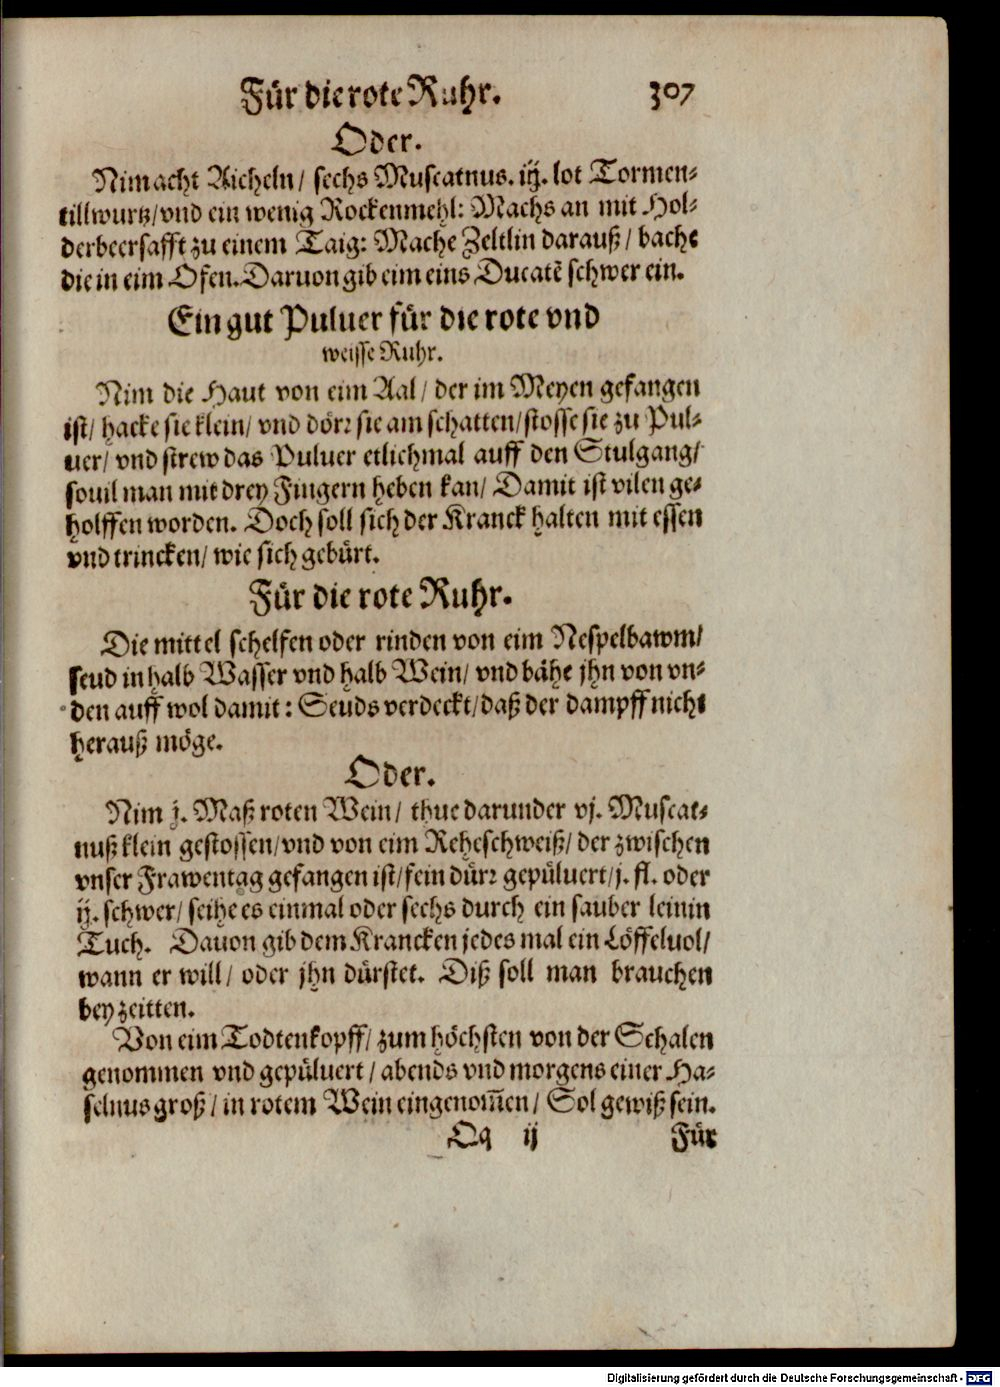 Für die rote Ruhr. 307
Oder.
Nim acht Aicheln/ sechs Muscatnus. iij. lot Tormen-
tillwurtz/vnd ein wenig Rockenmehl: Machs an mit Hol-
derbeersafft zu einem Taig: Mache Zeltlin darauß/ bach
die in eim Ofen. Daruon gib eim eins Ducatē schwer ein.
Ein gut Puluer für die rote vnd
weisse Ruhr.
Nim die Haut von eim Aal/ der im Meyen gefangen
ist/ hacke sie klein/ vnd dörꝛ sie am schatten/stosse sie zu Pul-
uer/ vnd strew das Puluer etlichmal auff den Stulgang/
souil man mit drey Fingern heben kan/ Damit ist vilen ge-
holffen worden. Doch soll sich der Kranck halten mit essen
vnd trincken/ wie sich gebürt.
Für die rote Ruhr.
Die mittel schelfen oder rinden von eim Nespelbawm/
seud in halb Wasser vnd halb Wein/ vnd bähe jhn von vn-
den auff wol damit: Seuds verdeckt/daß der dampff nicht
herauß möge.
Oder.
Nim j. Maß roten Wein/ thue darunder vj. Muscat-
nuß klein gestossen/vnd von eim Reheschweiß/ der zwischen
vnser Frawentag gefangen ist/fein dürꝛ gepüluert/j. fl. oder
ij. schwer/ seihe es einmal oder sechs durch ein sauber leinin
Tuch. Dauon gib dem Krancken jedes mal ein Löffeluol/
wann er will/ oder jhn dürstet. Diß soll man brauchen
bey zeitten.
Von eim Todtenkopff/ zum höchsten von der Schalen
genommen vnd gepüluert/ abends vnd morgens einer Ha-
selnus groß/ in rotem Wein eingenom̄en/ Sol gewiß sein.
Qq ij Für
Digitalisierung gefördert durch die Deutsche Forschungsgemeinschaft - DFG